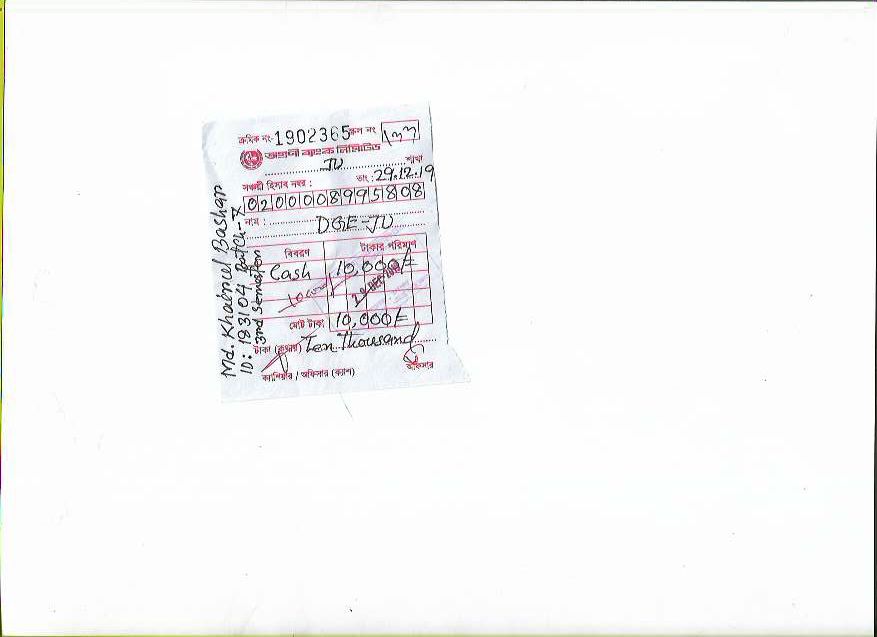 ক্রমিক নং- 1902365 স্ক্রল নং
অগ্রণী ব্যাংক লিমিটেড
JU শাখা
সঞ্চয়ী হিসাব নম্বর : তাং : 29.12.19
0200008995808
নাম : DGE-JU
বিবরণ টাকার পরিমাণ
Cash 10,000/=
29 DEC 2019
মোট টাকা 10,000/=
টাকা (কথায়) Ten Thousand
ক্যাশিয়ার / অফিসার (ক্যাশ) অফিসার
Md. Khairul Bashar
ID: 183104 Batch-7
3nd Semester